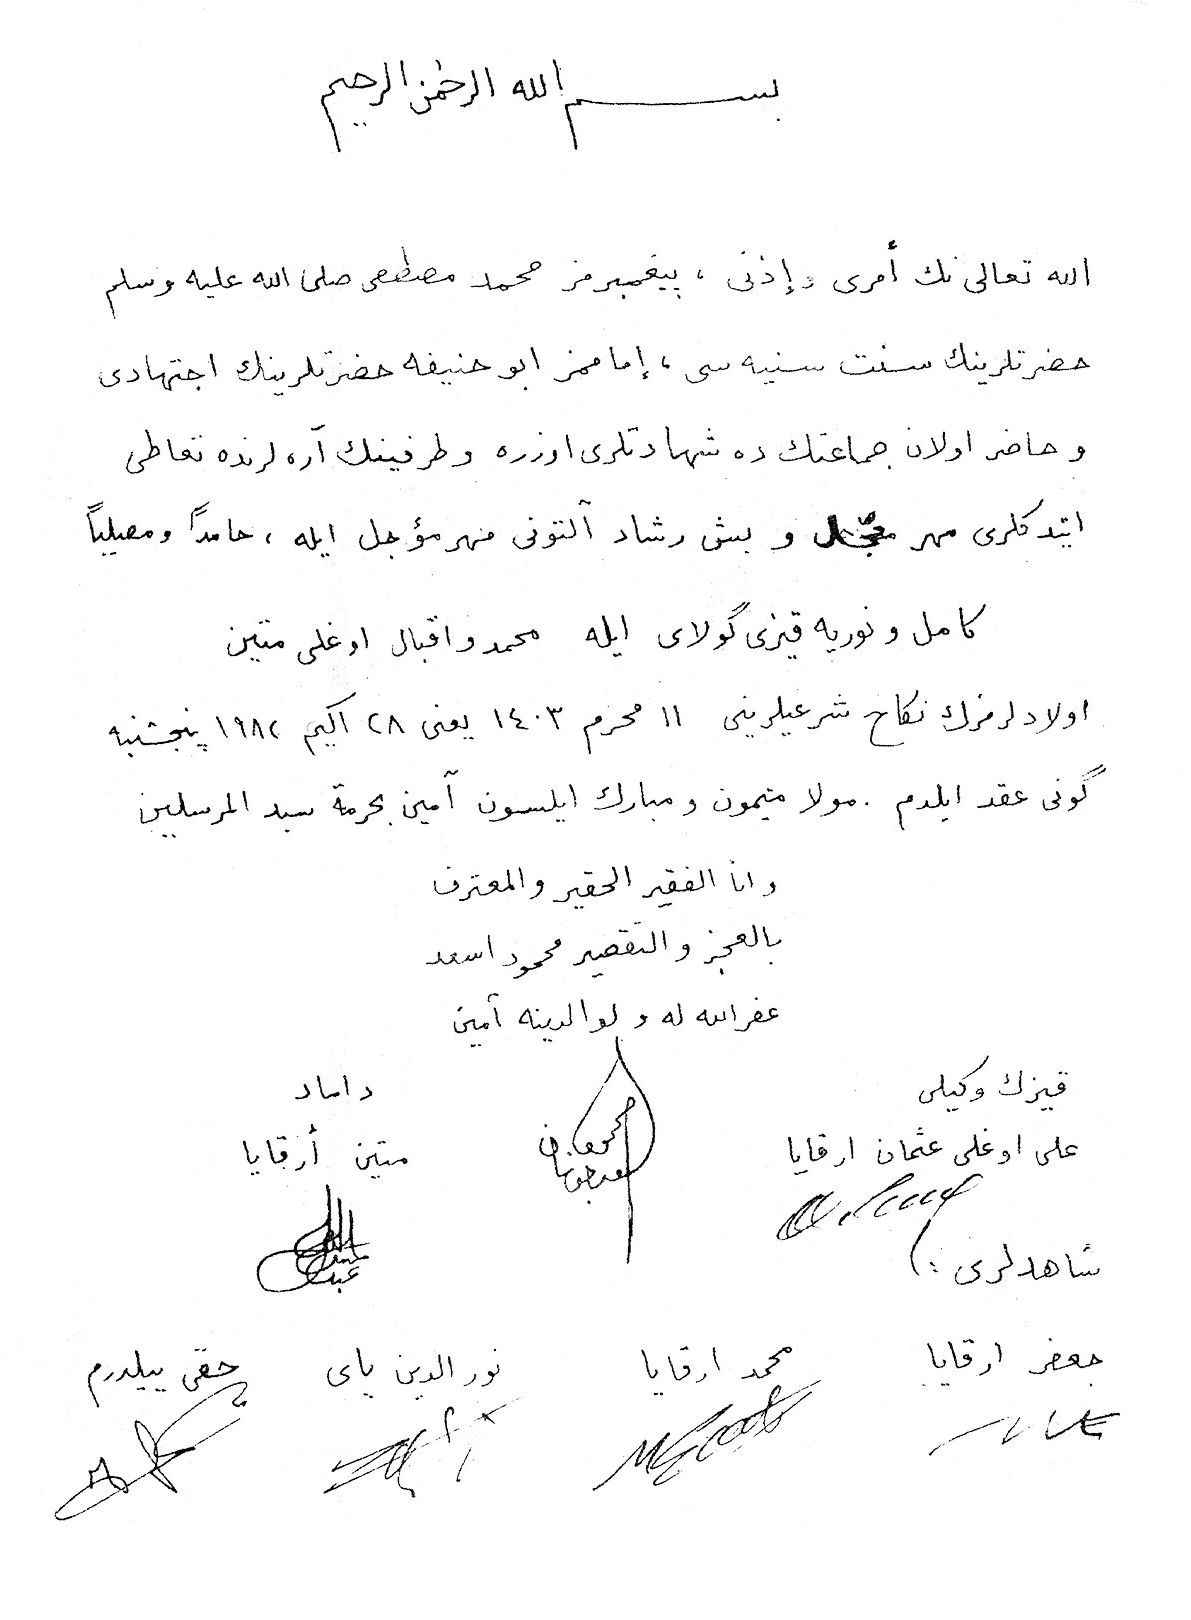 بسم الله الرحمن الرحيم
الله تعالى نك أمرى و إذنى ، پيغمبرمز محمد مصطفى صلى الله عليه وسلم
حضرتلرينك سنت سنيه سى ، إماممز ابو حنيفه حضرتلرينك اجتهادى
و حاضر اولان جماعتك ده شهادتلرى اوزره و طرفينك آره لرنده تعاطى
ايتدكلرى مهر معجّل و بش رشاد آلتونى مهر مؤجل ايله ، حامداً ومصلياً
كامل و نوريه قيزى گولاى ايله محمد و اقبال اوغلى متين
اولادلرمزك نكاح شرعيلرينى ١١ محرم ١٤٠٣ يعنى ٢٨ اكيم ١٩٨٢ پنجشنبه
گونى عقد ايلدم . مولا ميمون و مبارك ايلسون آمين بحرمة سيد المرسلين
و انا الفقير الحقير و المعترف
بالعجز و التقصير محمود اسعد
غفر الله له و لوالدينه آمين
قيزك وكيلى
داماد
على اوغلى عثمان ارقايا
متين أرقايا
شاهدلرى :
جعفر ارقايا محمد ارقايا نور الدين باى حقى ييلدرم